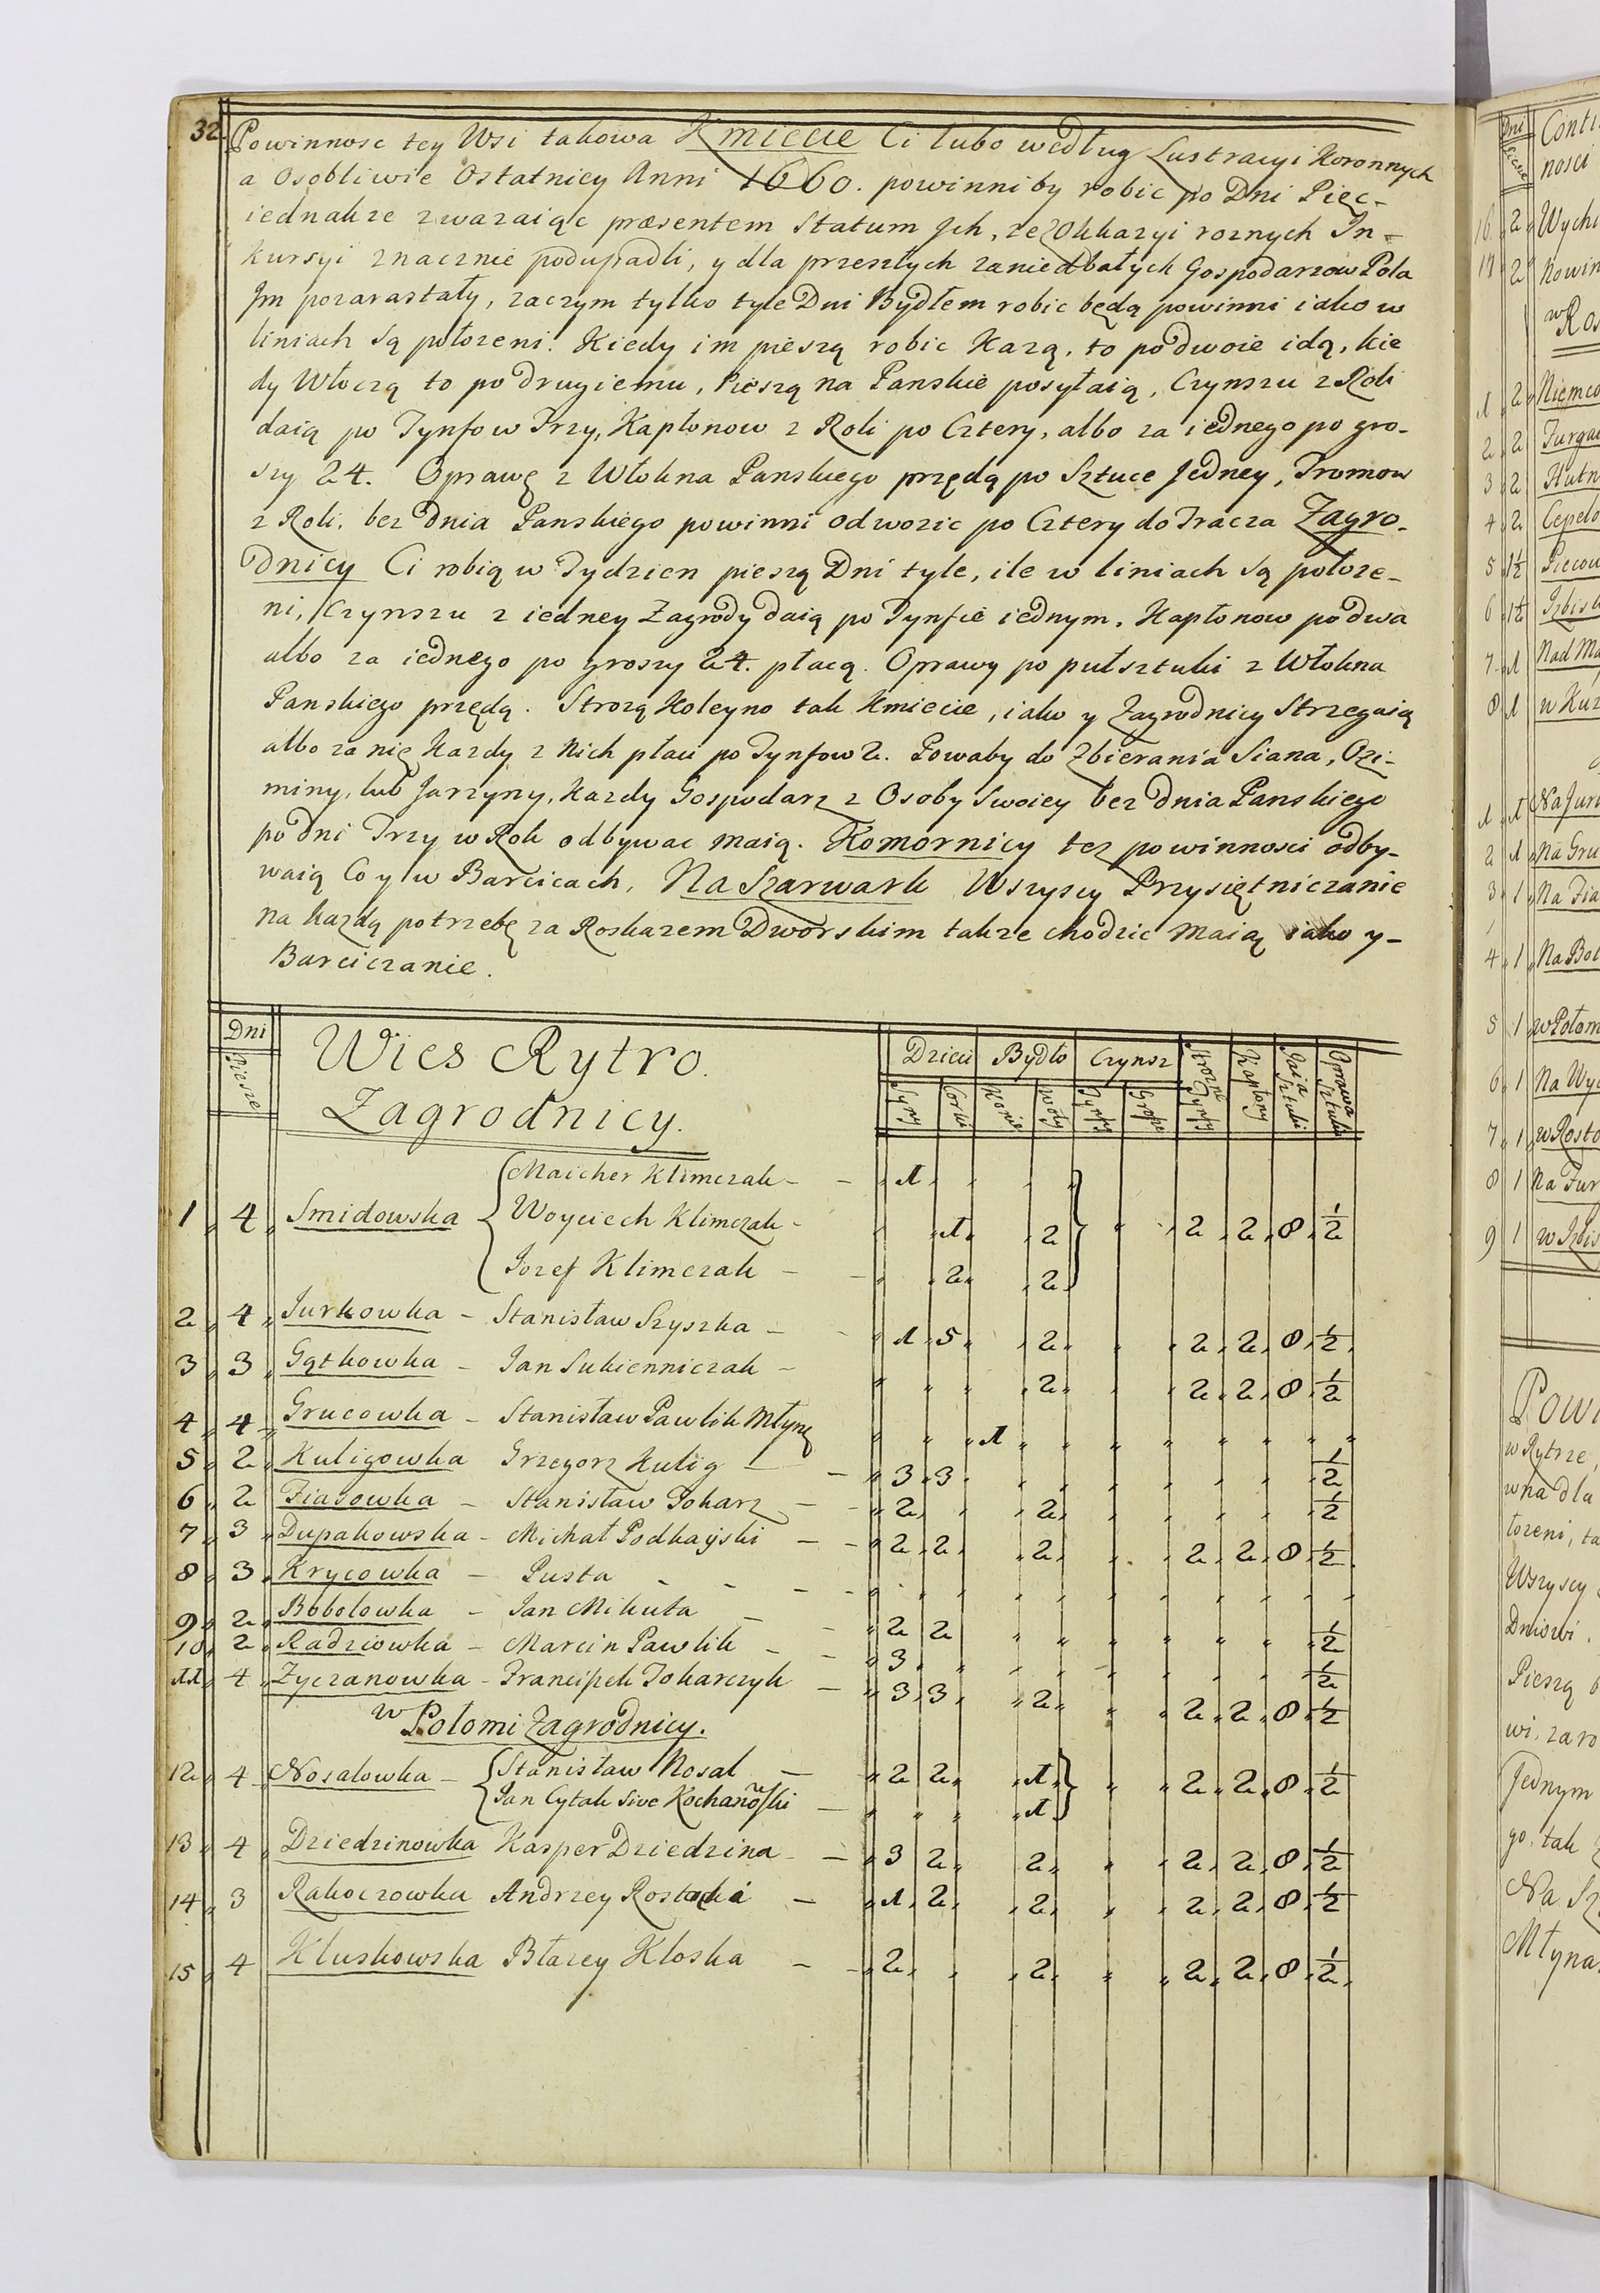 32.
Powinnosc tey Wsi takowa Kmiecie Ci lubo według Lustracyi Koronnych
a Osobliwie Ostatniey Anni 1660. powinniby robic po Dni Pięc-
iednakze zwazaiąc præsentem Statum Jch, ze z Okkazyi roznych In-
kursyi znacznie podupadli, y dla przeszłych zaniedbałych Gospodarzow Pola
Jm pozarastały, zaczym tylko tyle Dni Bydłem robic będą powinni iako w
liniach są połozeni. Kiedy im pieszą robic Kazą, to po dwoie idą, kie
dy Włoczą to po drugiemu, Pieszą na Panskie posyłaią, Czynszu z Roli
daią po Tynfow Trzy, Kapłonow z Roli po Cztery, albo za iednego po gro-
szy 24. Oprawę z Włokna Panskiego przędą po Sztuce Jedney, Tromow
z Roli, bez Dnia Panskiego powinni odwozic po Cztery do Tracza Zagro-
dnicy Ci robią w Tydzien pieszą Dni tyle, ile w liniach są połoze-
ni, Czynszu z iedney Zagrody daią po Tynfie iednym, Kapłonow po dwa
albo za iednego po groszy 24. płacą. Oprawy po puł sztuki z Włokna
Panskiego przędą. Strozą Koleyno tak Kmiecie, iako y Zagrodnicy Strzegaią
albo za nię Kazdy z Nich płaci po Tynfow 2. Powaby do Zbierania Siana, Ozi-
miny, lub Jarzyny, Kazdy Gospodarz z Osoby Swoiey bez dnia Panskiego
po dni Trzy w Rok odbywac maią. Komornicy tez powinnosci odby-
waią Co y w Barcicach, Na Szarwark Wszyscy Przysiętniczanie
na kazdą potrzebę za Roskazem Dworskim takze chodzic maią iako y-
Barciczanie.
Dni Wies Rytro. Dzieci Bydło Czynsz Strozne Tynfy Kapłony Jaia Sztuki Oprawa Sztuki
Piesze Zagrodnicy. Syny Corki Konie Woły Tynfy Grosze
Maicher Klimczak - - 1
1 4 Smidowska Woyciech Klimczak - 1 2 2 2 8 1/2
Jozef Klimczak - - 2 2
2 4 Jurkowka - Stanisław Szyszka - - 1 5 2 2 2 8 1/2
3 3 Gątkowka - Jan Sukienniczak - 2 2 2 8 1/2
4 4 Grucowka - Stanisław Pawlik Młynę 1
5 2 Kuligowka Grzegorz Kulig - - 3 3 1/2
6 2 Fiasowka - Stanisław Tokarz - - 2 2 1/2
7 3 Dupakowska - Michał Podhayski - - 2 2 2 2 2 8 1/2
8 3 Krycowka - Pusta - - - -
9 2 Bobolowka - Jan Mikuta - - 2 2 1/2
10 2 Radziowka - Marcin Pawlik - - 3 1/2
11 4 Zyczanowka - Franciszek Tokarczyk - 3 3 2 2 2 8 1/2
w Połomi Zagrodnicy.
12 4 Nosalowka - Stanisław Nosal - 2 2 1 2 2 8 1/2
Jan Cytak sive Kochanoski - 1
13 4 Dziedzinowka Kasper Dziedzina - - 3 2 2 2 2 8 1/2
14 3 Rakoczowka Andrzey - 1 2 2 2 2 8 1/2
15 4 Kluskowska Błazey Kloska - - 2 2 2 2 8 1/2
Dni Conti
nosci
16 2 Wych
17 2 Nowin
w Ros
1 2 Niemco
2 2 Jurga
3 2 Hutn
4 2 Cepelo
5 1 1/2 Piecow
6 1 1/2 Izbisk
7 1 Nad Ma
8 1 w Kúz
1 1 Na Jur
2 1 Na Gru
3 1 Na Fia
4 1 Na Bol
5 1 w Połom
6 1 Na Wy
7 1 w Rosto
8 1 Na Jur
9 1 w Izbis
Powi
w Rytrze,
wna dla
łozeni, ta
Wszyscy
Dniowi.
Pieszą
wi, za ro
Jednym
go, tak
Na Sz
Młyna